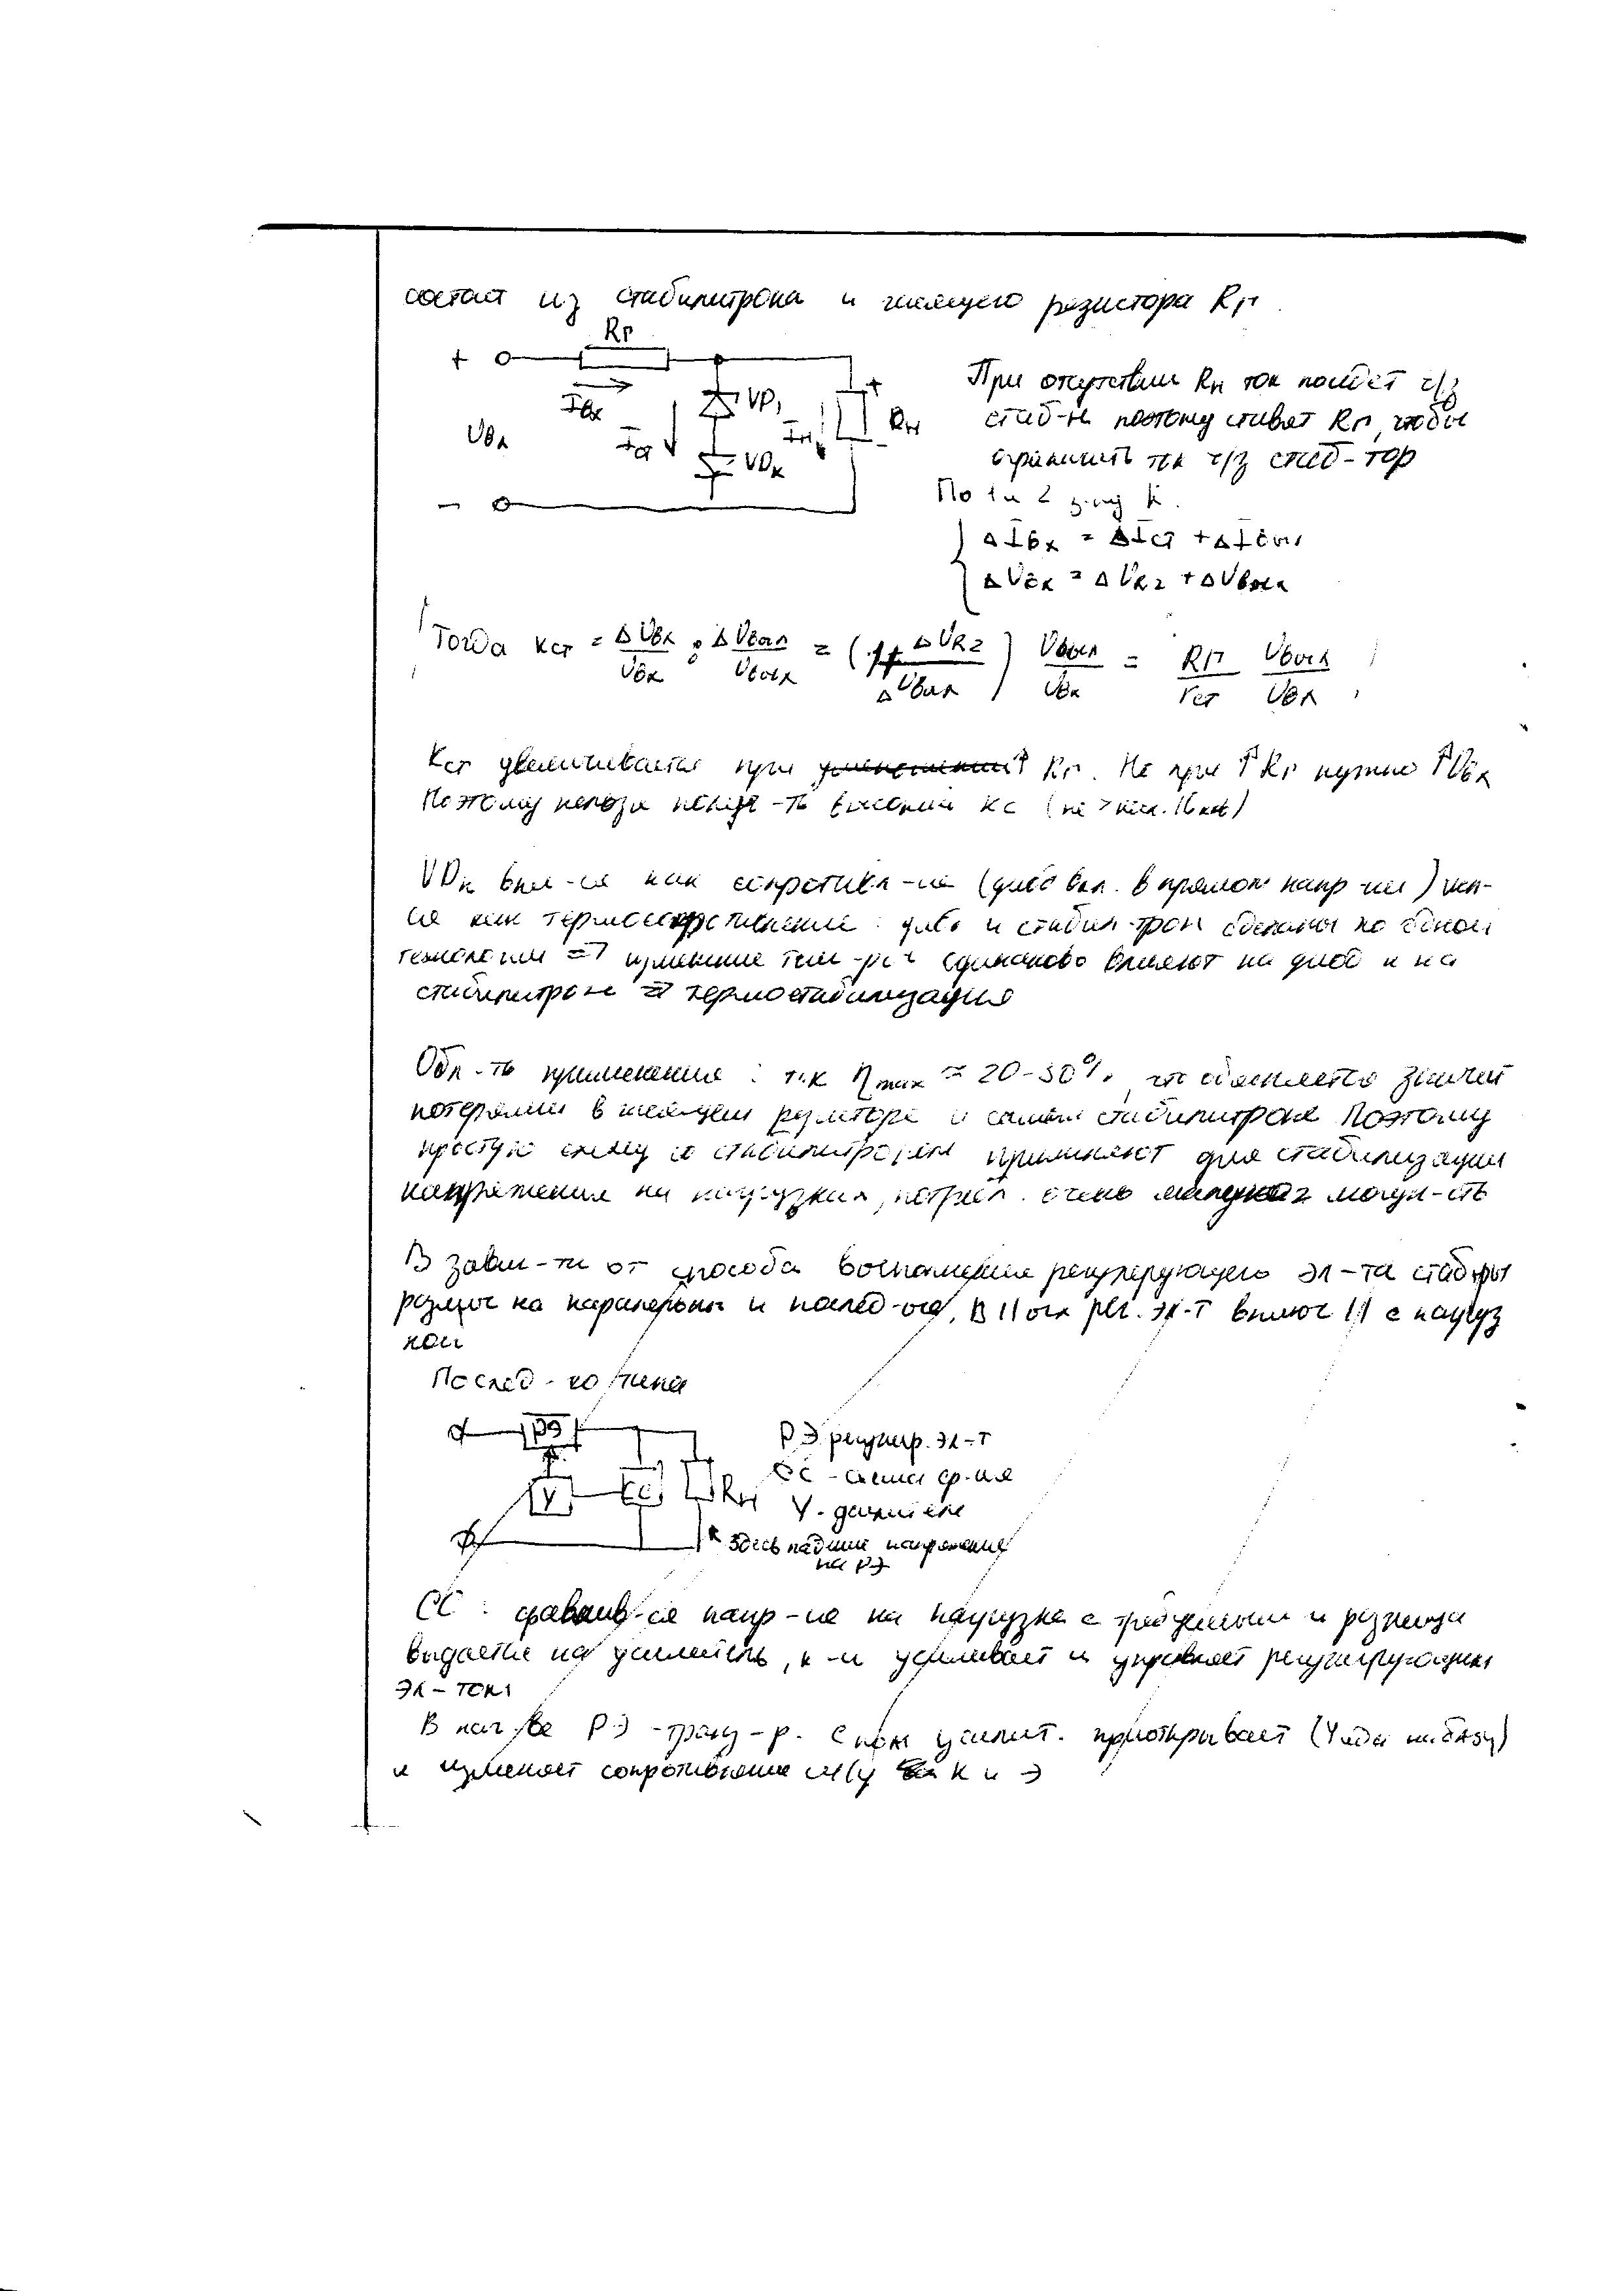 состоит из стабилитрона и гасящего резистора Rг
Rг
+
Iвх
VD1
+
Rн
Uвх
Iст
Iн
VDк
−
При отсутствии Rн ток пойдет ч/з
стаб-н поэтому ставят Rг, чтобы
ограничить ток ч/з стаб-тор
По 1 и 2 з-ну К.
ΔIвх = ΔIст + ΔIвых
ΔUвх = ΔURг + ΔUвых
Тогда Kст = ΔUвх/Uвх : ΔUвых/Uвых = (1+ ΔURг/ΔUвых) Uвых/Uвх = Rг/rст Uвых/Uвх
Kст увеличивается при ↑ Rг. Но при ↑ Rг нужно ↑Uвх
Поэтому нельзя высокий Kс
VDк вкл-ся как сопротивл-ие (диод вкл. в прямом напр-ии) исп-
ся как термосопротивление: диод и стабил-трон сделаны по одной
технологии => изменение тем-ры одинаково влияют на диод и на
стабилитрон => термостабилизация
Обл-ть применения: т.к ηmax ≈ 20-30%, что объясняется значит
потерями в гасящем резисторе и самом стабилитроне Поэтому
простую схему со стабилитроном применяют для стабилизации
напряжения на нагрузках, потребл. очень мощн-сть
В завис-ти от способа регулирующего эл-та стаб-ры
различ на паралельн и послед-ые. В || ых рег. эл-т включ || с нагруз
кой
Послед-го типа
РЭ
РЭ регулир. эл-т
У
СС
Rн
СС - схема ср-ия
У - усилитель
здесь падение напряжение
на РЭ
СС: сравнив-ся напр-ие на нагрузке с требуемым и разница
выдается на усилитель, к-й усиливает и управляет регулирующим
эл-том
В кач-ве РЭ -транз-р. С пом усилит. приоткрывает
и изменяет сопротивление м/у К и Э